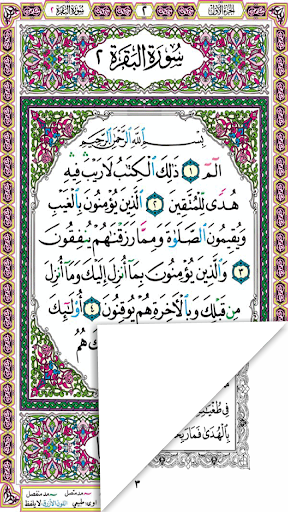 الجزء الأول
٢
سورة البقرة ٢
سُورَةُ الْبَقَرَةِ ٢
بِسْمِ اللَّهِ الرَّحْمَٰنِ الرَّحِيمِ
الٓمٓ ١ ذَٰلِكَ الْكِتَٰبُ لَا رَيْبَ فِيهِ
هُدًى لِّلْمُتَّقِينَ ٢ الَّذِينَ يُؤْمِنُونَ بِالْغَيْبِ
وَيُقِيمُونَ الصَّلَوٰةَ وَمِمَّا رَزَقْنَٰهُمْ يُنفِقُونَ
٣ وَالَّذِينَ يُؤْمِنُونَ بِمَا أُنزِلَ إِلَيْكَ وَمَا أُنزِلَ
مِن قَبْلِكَ وَبِالْأَخِرَةِ هُمْ يُوقِنُونَ ٤ أُولَٰئِكَ
هُمُ
فِي طُغْيَٰنِهِمْ
بِالْهُدَىٰ فَمَا رَبِحَت
٣
مد متصل
مد منفصل
اللون الأزرق لا يلفظ